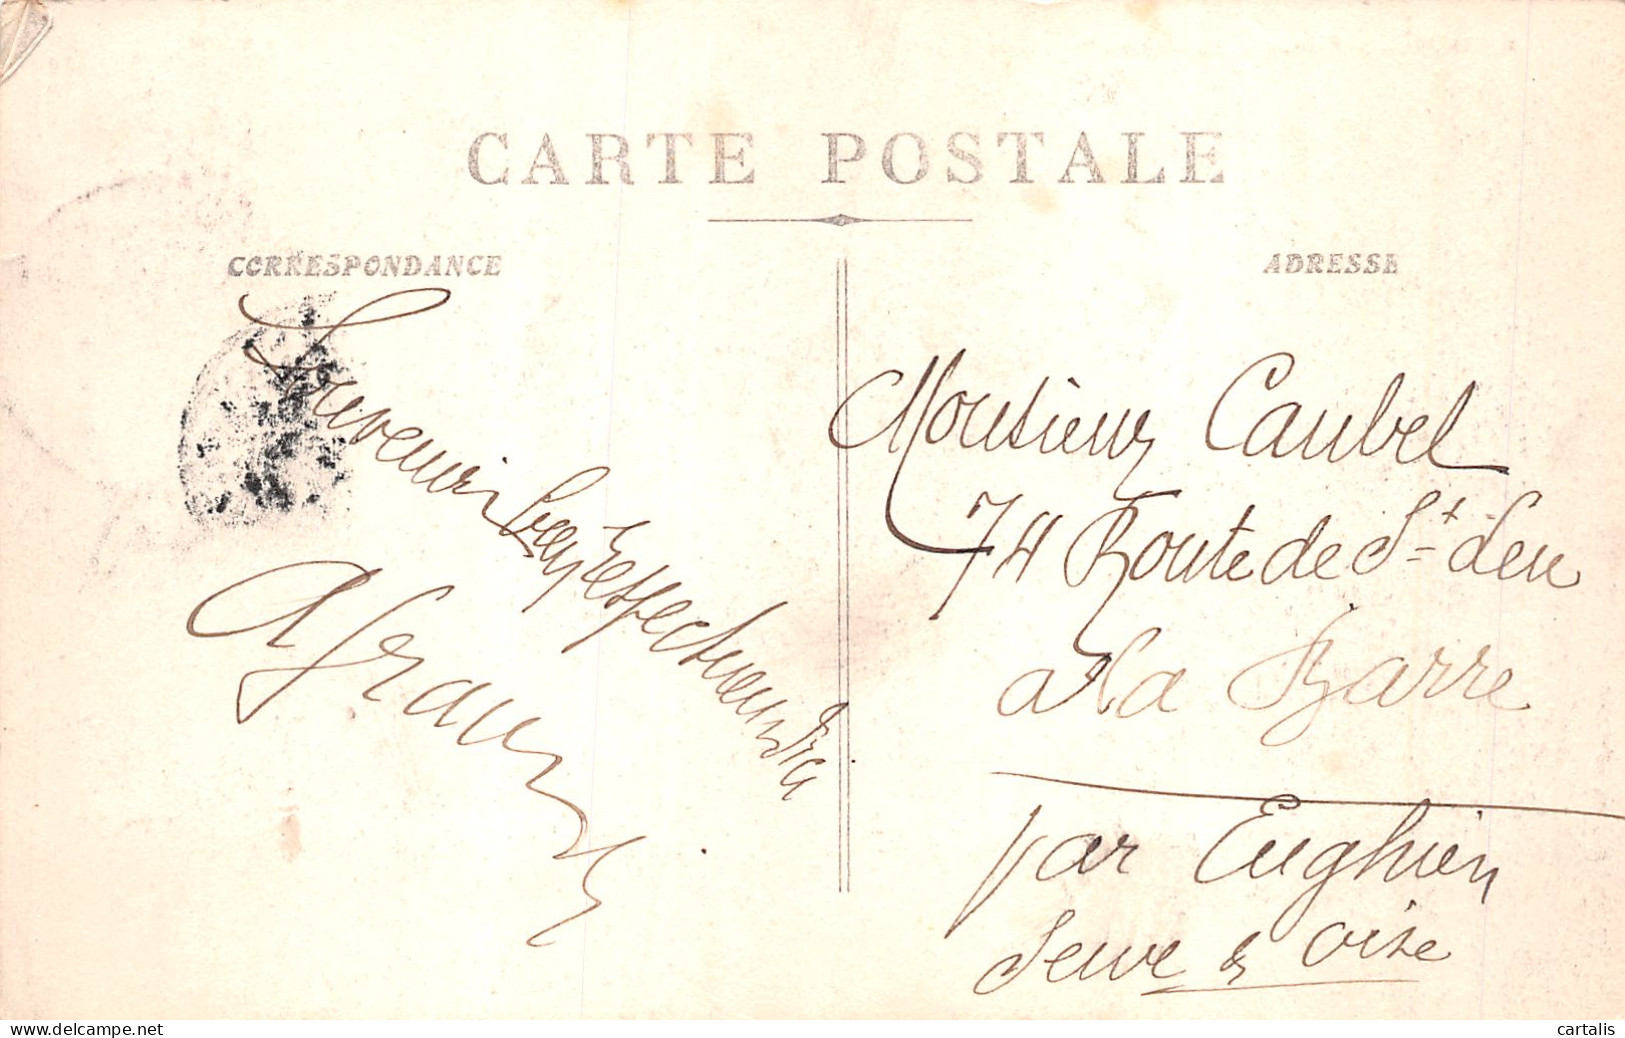 CARTE POSTALE
CORRESPONDANCE
ADRESSE
Souvenir bien respectueux
Monsieur Caubel
74 Route de St-Leu
a la Barre
par Enghien
Seine & Oise
delcampe.net
cartalis